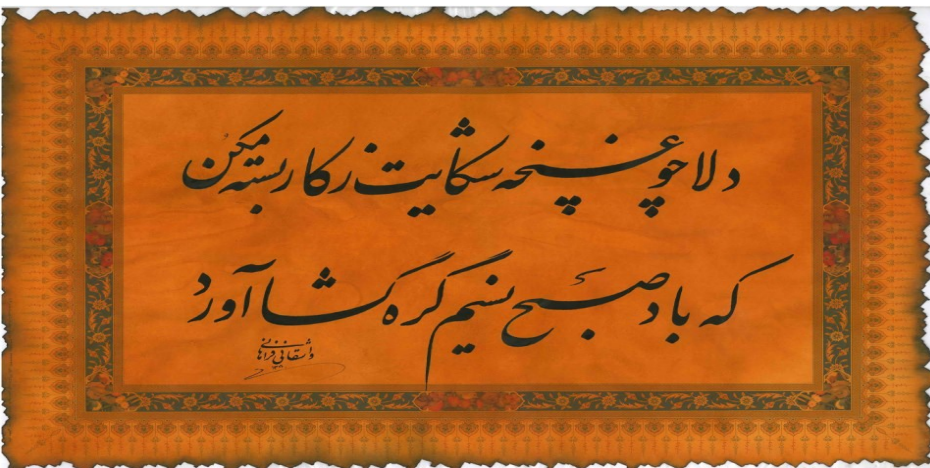 دلا چو غنچه شکایت ز کار بسته مکن
که باد صبح نسیم گره گشا آورد
واشقانی فراهانی